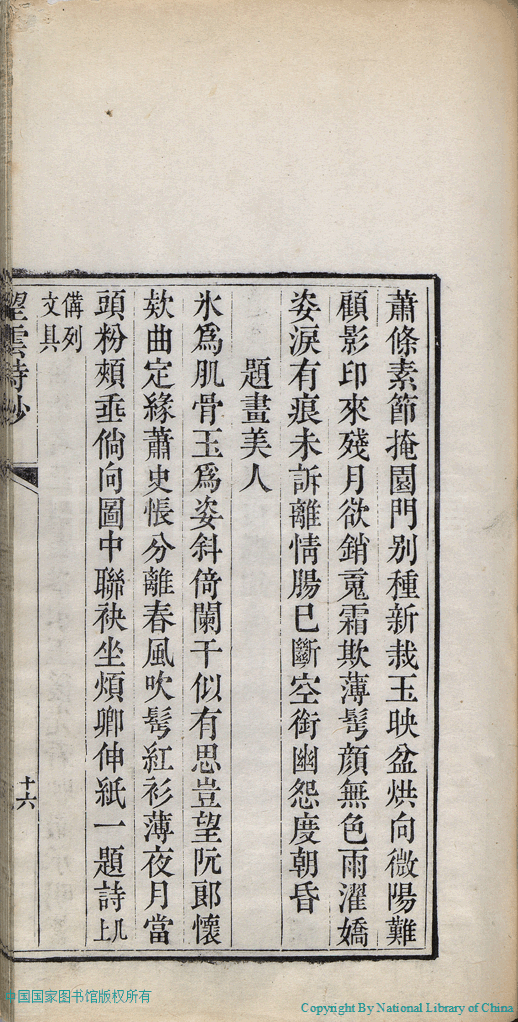 蕭條素節掩園門別種新栽玉映盆烘向微陽難
顧影印來殘月欲銷䰟霜欺薄髩顔無色雨濯嬌
姿淚有痕未訴離情腸已斷空銜幽怨度朝昏
題畫美人
氷爲肌骨玉爲姿斜倚闌干似有思豈望阮郎懷
欵曲定緣蕭史悵分離春風吹髩紅衫薄夜月當
頭粉頰垂倘向圖中聯袂坐煩卿伸紙一題詩几上
備列文具
望雲詩鈔
十六
中国国家图书馆版权所有
Copyright By National Library of China